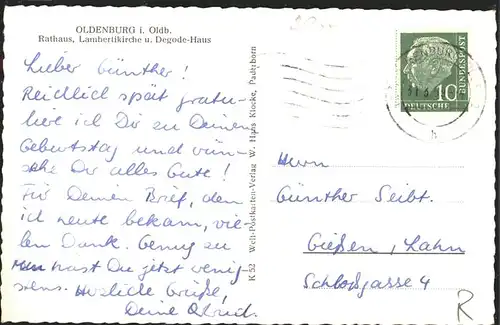 OLDENBURG i. Oldb.
Rathaus, Lambertikirche u. Degode-Haus
Lieber Günther!
Reichlich spät gratu-
liere ich Dir zu Deinem
Geburtstag und wün-
sche Dir alles Gute!
Für Deinen Brief, den
ich heute bekam, vie-
len Dank. Genug zu
hast Du jetzt wenig-
stens. Herzliche Grüße,
Deine
K 52 Welt-Postkarten-Verlag W. Hans Klocke, Paderborn
DEUTSCHE
BUNDESPOST
10
Herrn
Günther Seibt.
Gießen, Lahn
Schloßgasse 4
R